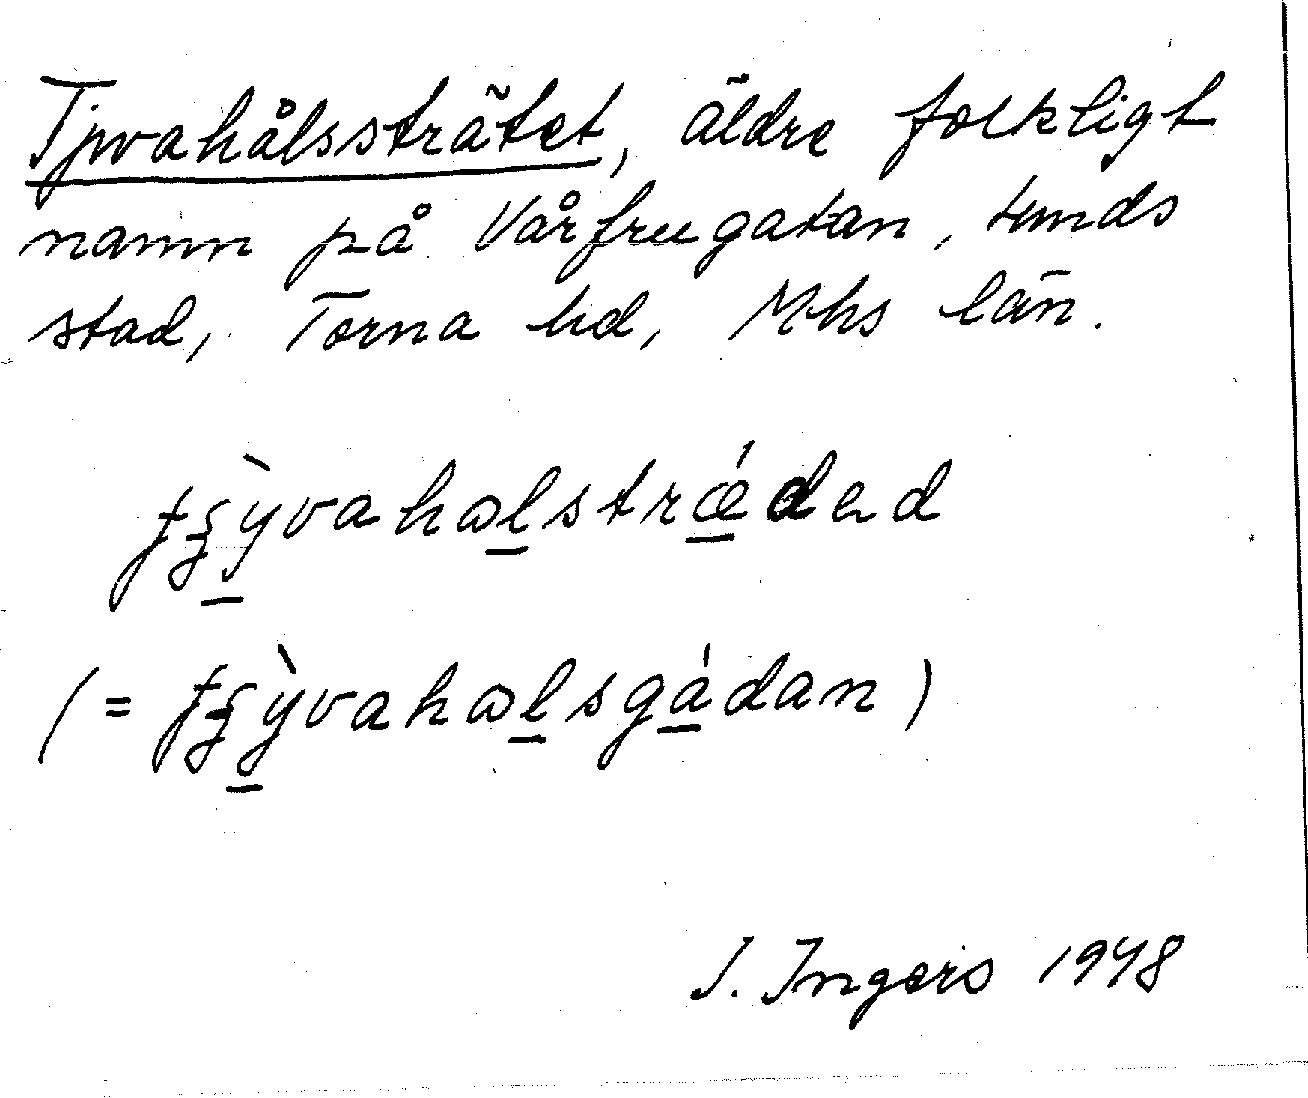 Tjyvahålssträtet, äldre folkligt
namn på Vårfrugatan, Lunds
stad, Torna hd, Mhs län.
(=
I. Ingers 1948